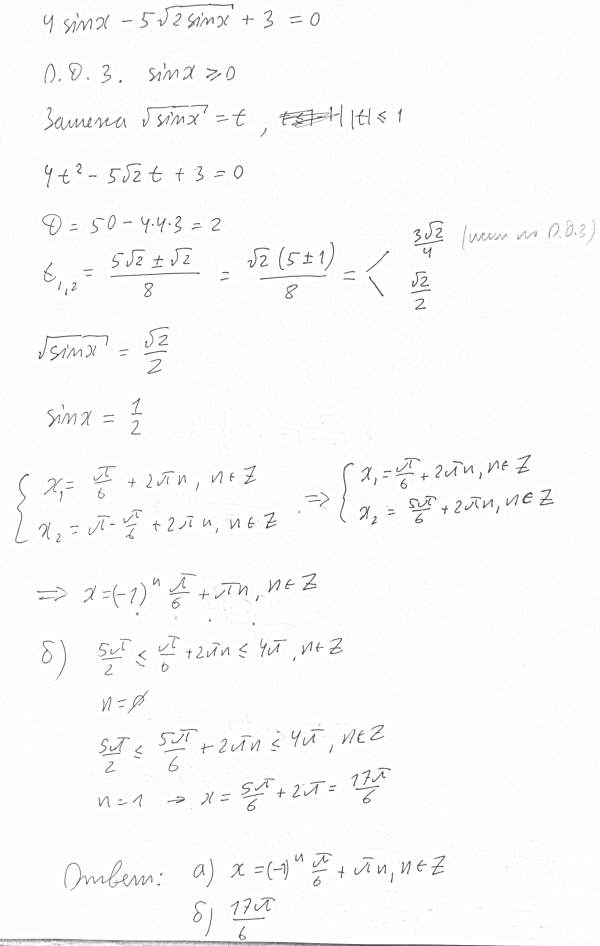 4 sinx - 5√(2 sinx) + 3 = 0
О.Д.З. sinx ⩾ 0
Замена √(sinx) = t, |t| ⩽ 1
4t² - 5√2 t + 3 = 0
D = 50 - 4·4·3 = 2
t₁,₂ = (5√2 ± √2)/8 = √2(5±1)/8 = < 3√2/4 ( по О.Д.З)
√2/2
√(sinx) = √2/2
sinx = 1/2
{ x₁ = π/6 + 2πn, n∈Z => { x₁ = π/6 + 2πn, n∈Z
x₂ = π - π/6 + 2πn, n∈Z x₂ = 5π/6 + 2πn, n∈Z
=> x = (-1)ⁿ π/6 + πn, n∈Z
б) 5π/2 ⩽ π/6 + 2πn ⩽ 4π, n∈Z
n = ∅
5π/2 ⩽ 5π/6 + 2πn ⩽ 4π, n∈Z
n = 1 → x = 5π/6 + 2π = 17π/6
Ответ: а) x = (-1)ⁿ π/6 + πn, n∈Z
б) 17π/6